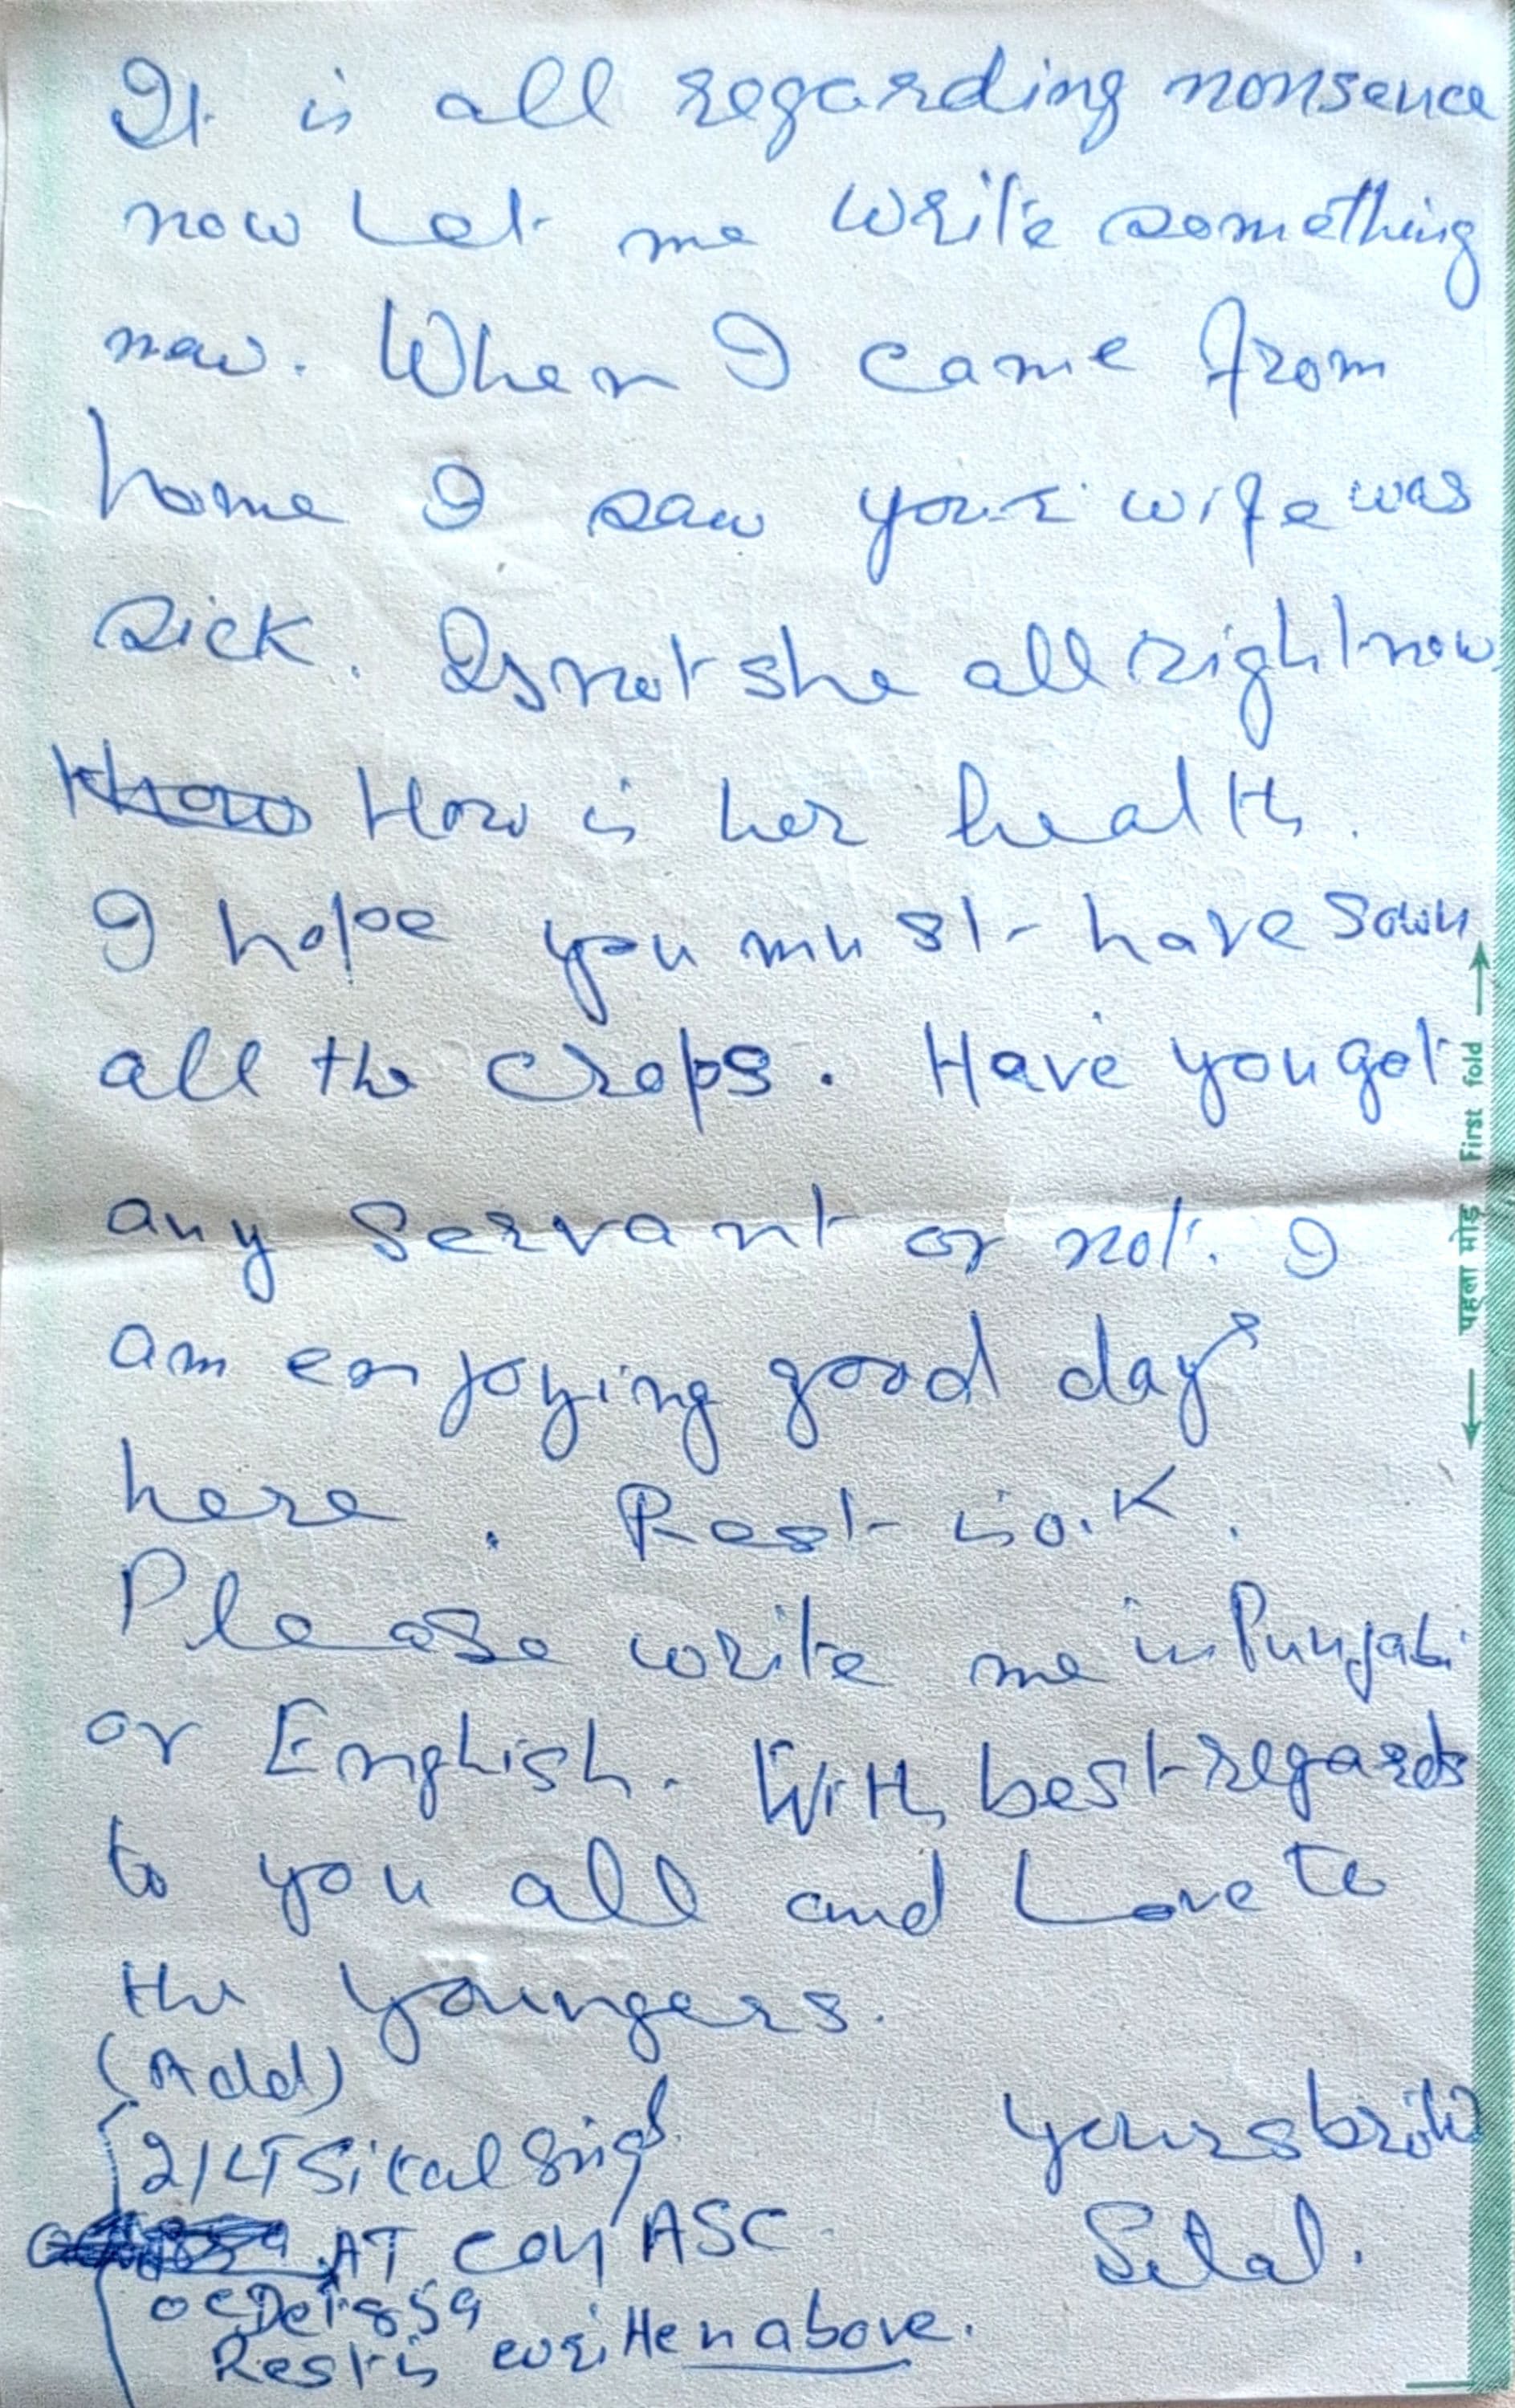 It is all regarding nonsence
now Let me write something
now. When I came from
home I saw your wife was
sick. Is not she all right now
Know How is her health.
I hope you must have sown
all the crops. Have you got
any servant or not. I
am enjoying good days
here. Rest is O.K.
Please write me in Punjabi
or English. With best regards
to you all and Love to
the youngers.
(Add)
2/LT Sital Singh
AT COY ASC
OC Det 859
Rest is written above.
yours
Sital.
पहला मोड़ First fold